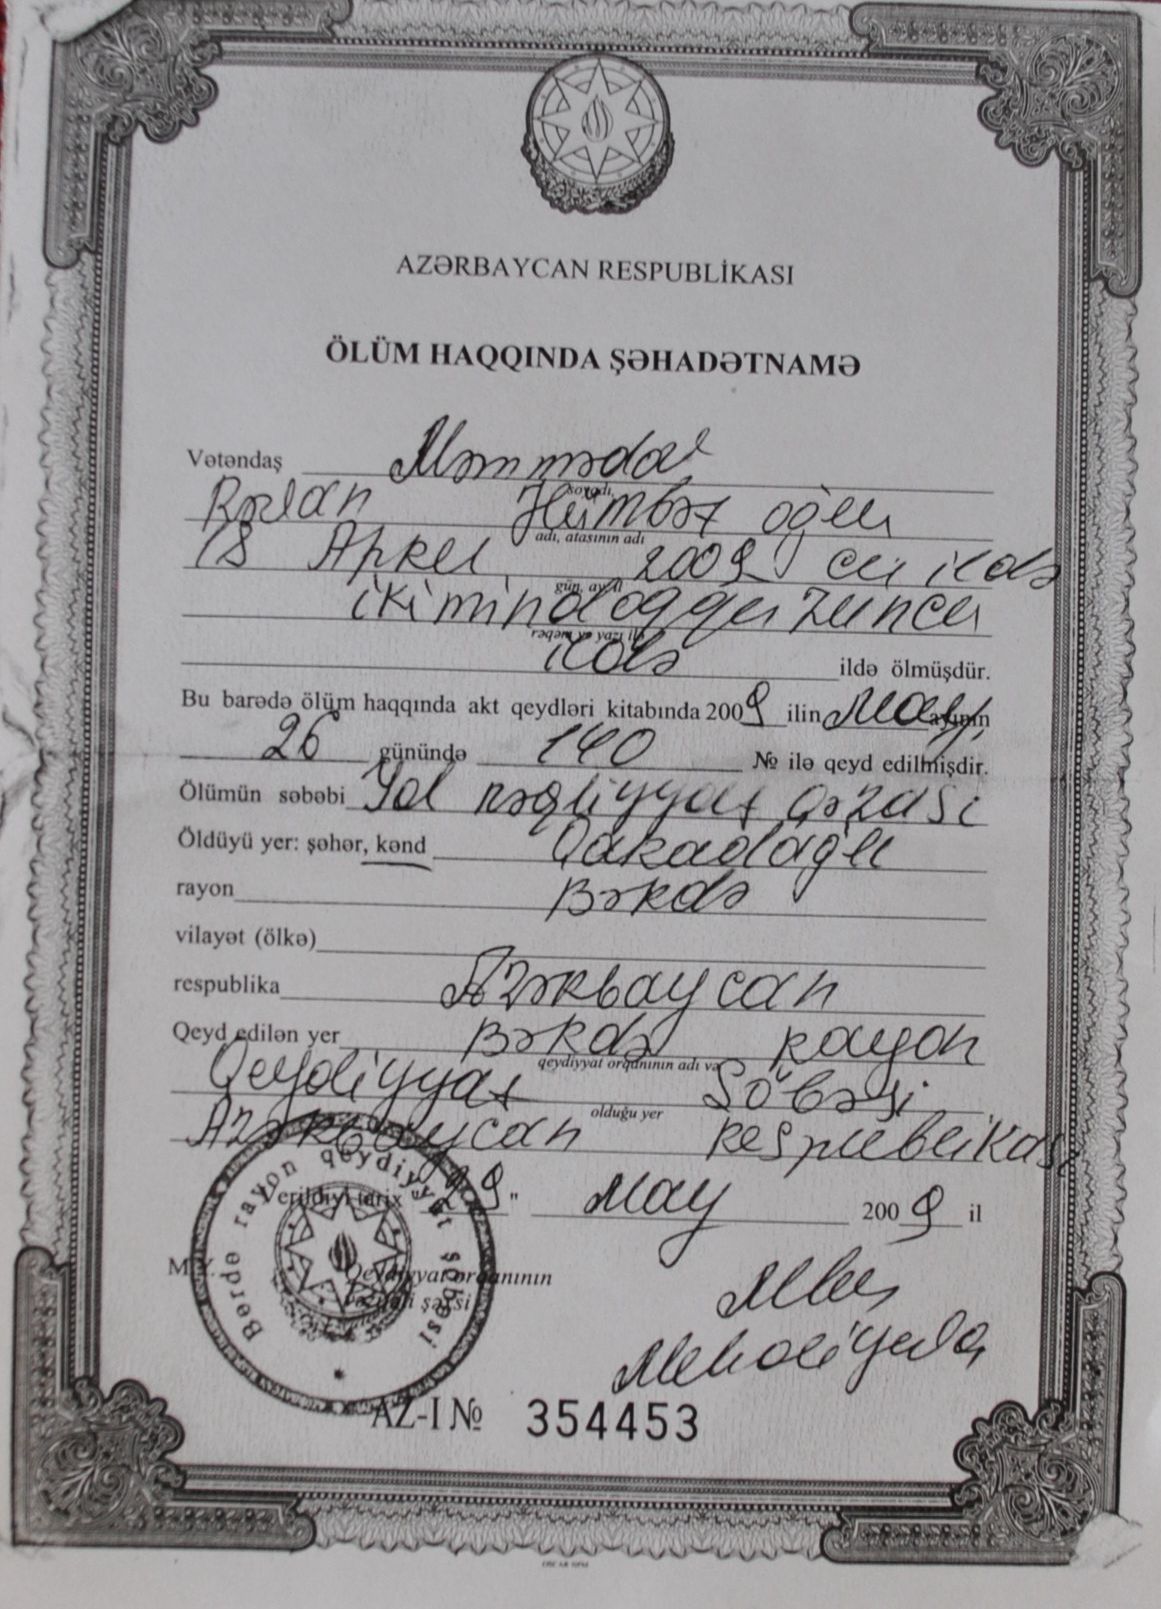 AZƏRBAYCAN RESPUBLİKASI
ÖLÜM HAQQINDA ŞƏHADƏTNAMƏ
Vətəndaş Məmmədov
soyadı,
Hümbət oğlu
adı, atasının adı
18 Aprel 2009 cu ildə
gün, ay, il
iki min doqquzuncu
rəqəm və yazı ilə
ildə ildə ölmüşdür.
Bu barədə ölüm haqqında akt qeydləri kitabında 2009 ilin May ayının
26 günündə 140 № ilə qeyd edilmişdir.
Ölümün səbəbi Yol nəqliyyat qəzası
Öldüyü yer: şəhər, kənd Qaradağlı
rayon Bərdə
vilayət (ölkə)
respublika Azərbaycan
Qeyd edilən yer Bərdə rayon
qeydiyyat orqanının adı və
Qeydiyyat Şöbəsi
olduğu yer
Azərbaycan Respublikası
Verildiyi tarix "29" May 2009 il
M.Y. Qeydiyyat orqanının
vəzifəli şəxsi
Bərdə rayon qeydiyyat şöbəsi
AZ-I № 354453